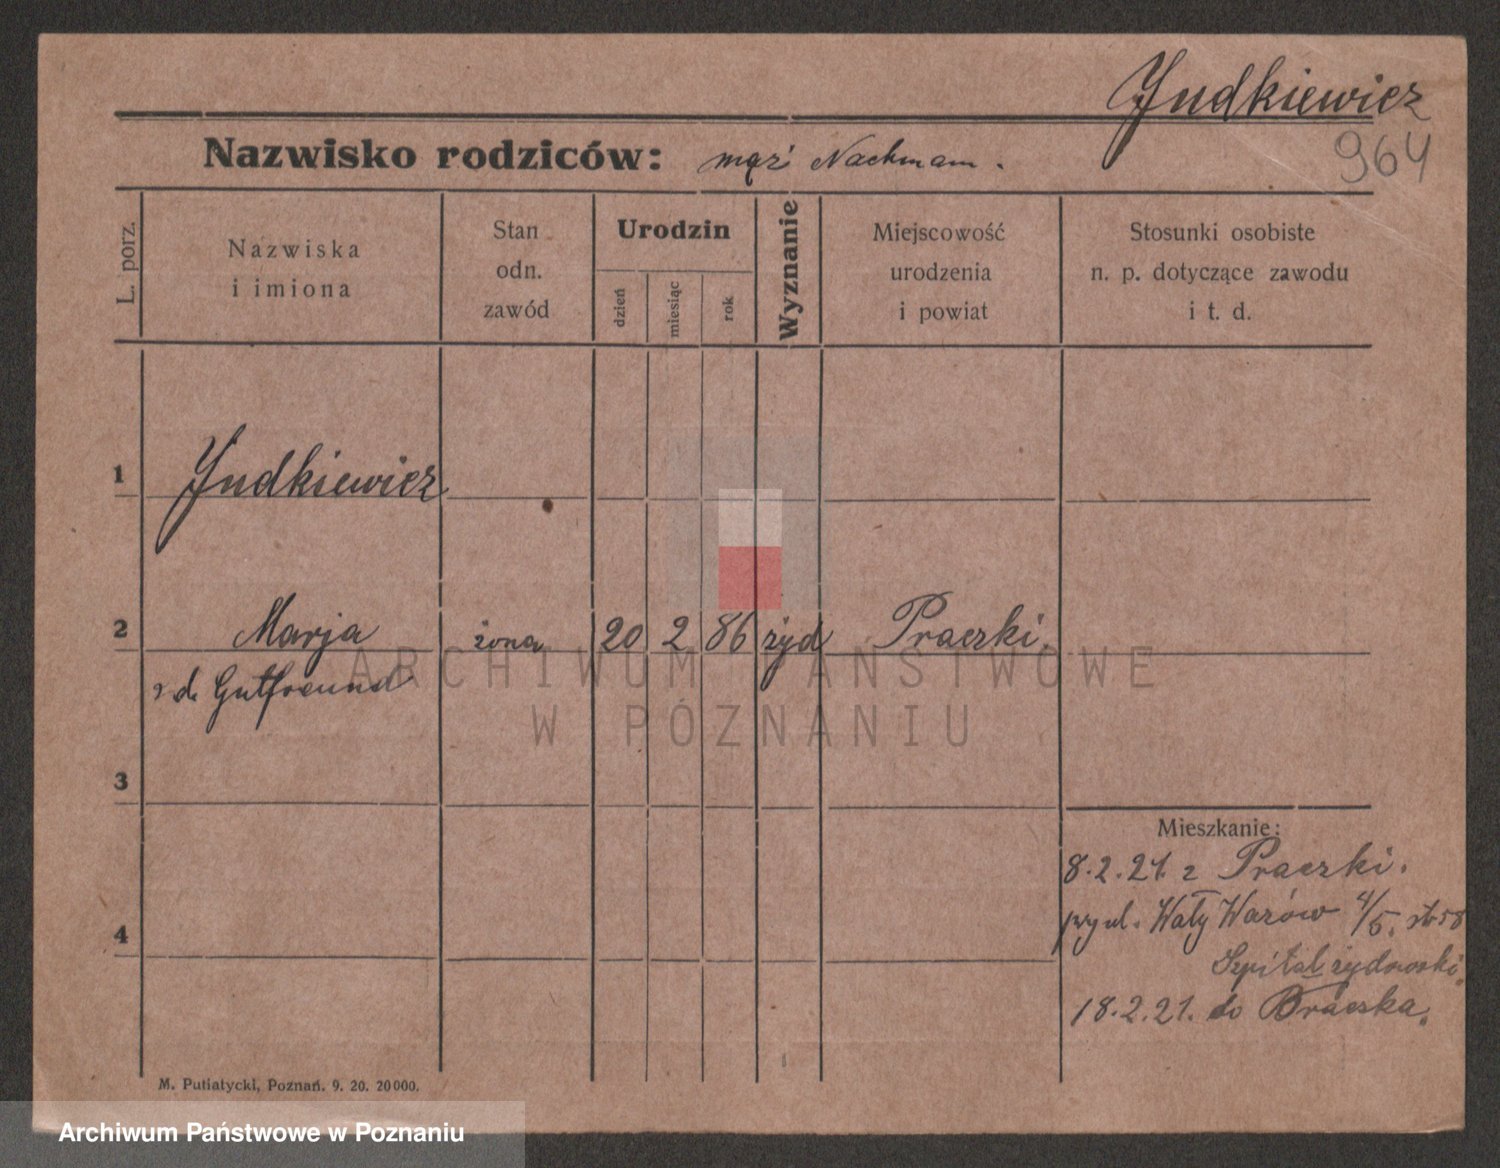 Judkiewicz
964
Nazwisko rodziców: mąż Nachmam.
L. porz.
Nazwiska
i imiona
Stan
odn.
zawód
Urodzin
dzień
miesiąc
rok
Wyznanie
Miejscowość
urodzenia
i powiat
Stosunki osobiste
n. p. dotyczące zawodu
i t. d.
1 Judkiewicz
2 Marja żona 20 2 86 żyd Praczki.
z d. Gutfreund
3
4
Mieszkanie:
8.2.21. z Praczki.
przy ul. Wały Wazów 4/5.
Szpital żydowski.
18.2.21. do
M. Putiatycki, Poznań. 9. 20. 20 000.
ARCHIWUM PAŃSTWOWE
W POZNANIU
Archiwum Państwowe w Poznaniu